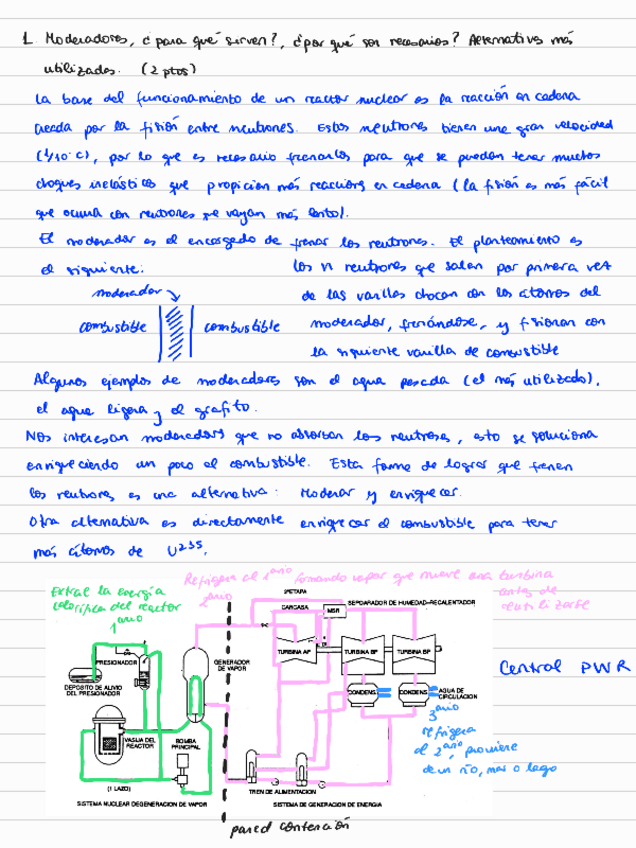 1. Moderadores, ¿para qué sirven?, ¿por qué son necesarios? Alternativas más
utilizadas. (2 ptos)
La base del funcionamiento de un reactor nuclear es la reacción en cadena
creada por la fisión entre neutrones. Estos neutrones tienen una gran velocidad
(1/10·c), por lo que es necesario frenarlos para que se puedan tener muchos
choques inelásticos que propicien más reacciones en cadena (la fisión es más fácil
que ocurra con neutrones que vayan más lento).
El moderador es el encargado de frenar los neutrones. El planteamiento es
el siguiente:
los n neutrones que salen por primera vez
de las varillas chocan con los átomos del
moderador, frenándose, y fisionan con
la siguiente varilla de combustible
moderador
combustible
combustible
Algunos ejemplos de moderadores son el agua pesada (el más utilizado),
el agua ligera y el grafito.
Nos interesan moderadores que no absorban los neutrones, esto se soluciona
enriqueciendo un poco el combustible. Esta forma de lograr que frenen
los neutrones es una alternativa: Moderar y enriquecer.
Otra alternativa es directamente enriquecer el combustible para tener
más átomos de U235.
Extrae la energía
calorífica del reactor
1ario
Refrigera el 1ario tomando vapor que mueve una turbina
2ario
antes de
reutilizarse
CARCASA
MSR
SEPDARADOR DE HUMEDAD-RECALENTADOR
TURBINA AP
TURBINA BP
TURBINA BP
PRESIONADOR
GENERADOR
DE VAPOR
DEPOSITO DE ALIVIO
DEL PRESIONADOR
CONDENS.
CONDENS.
AGUA DE
CIRCULACION
VASIJA DEL
REACTOR
BOMBA
PRINCIPAL
(1 LAZO)
TREN DE ALIMENTACION
SISTEMA NUCLEAR DEGENERACION DE VAPOR
SISTEMA DE GENERACION DE ENERGIA
Central PWR
3ario
refrigera
el 2ario, proviene
de un río, mar o lago
pared contención